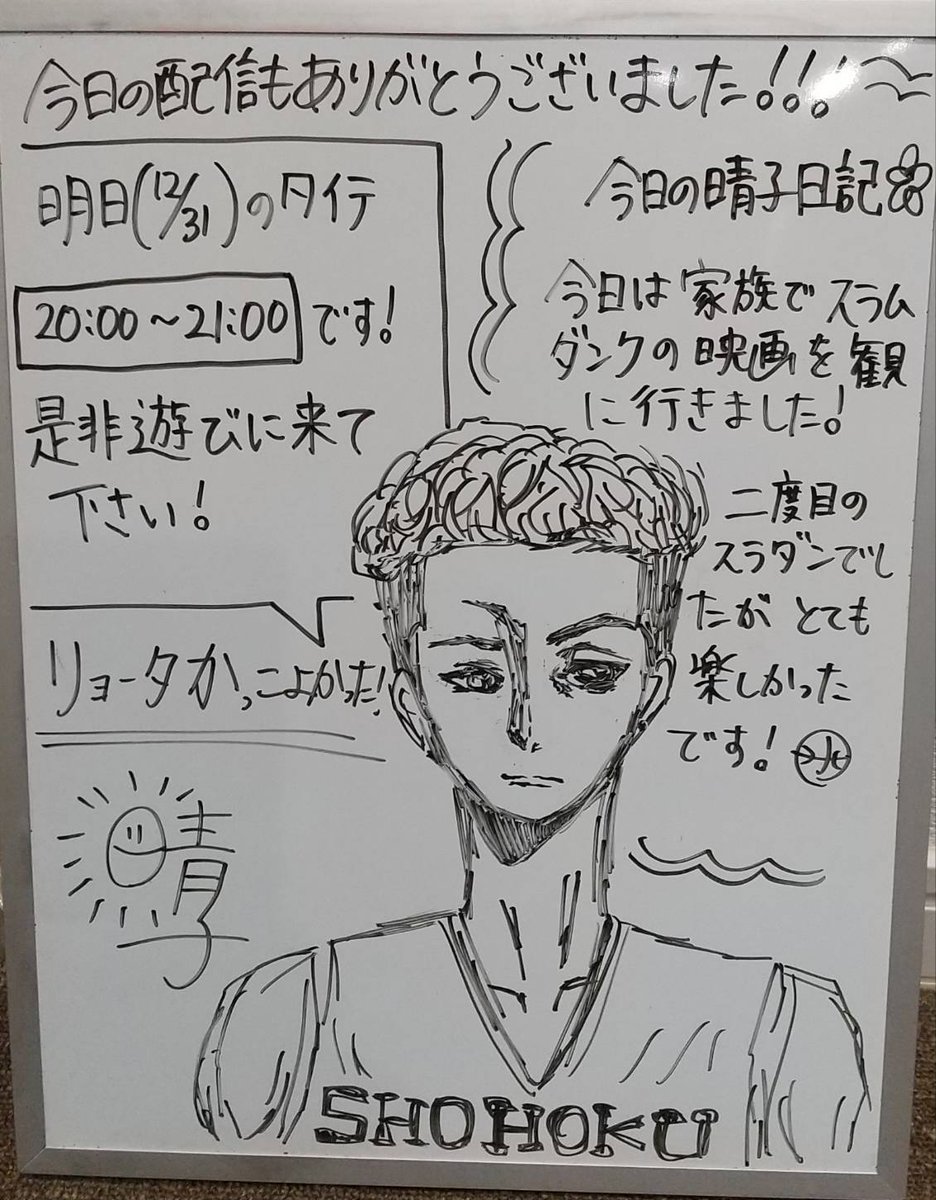 今日の配信もありがとうございました!!!
明日(12/31)のタイテ
20:00～21:00です!
是非遊びに来て
下さい!
今日の晴子日記
今日は家族でスラム
ダンクの映画を観
に行きました!
二度目の
スラダンでし
たがとても
楽しかった
です!
リョータかっこよかった!
晴子
SHOHOKU